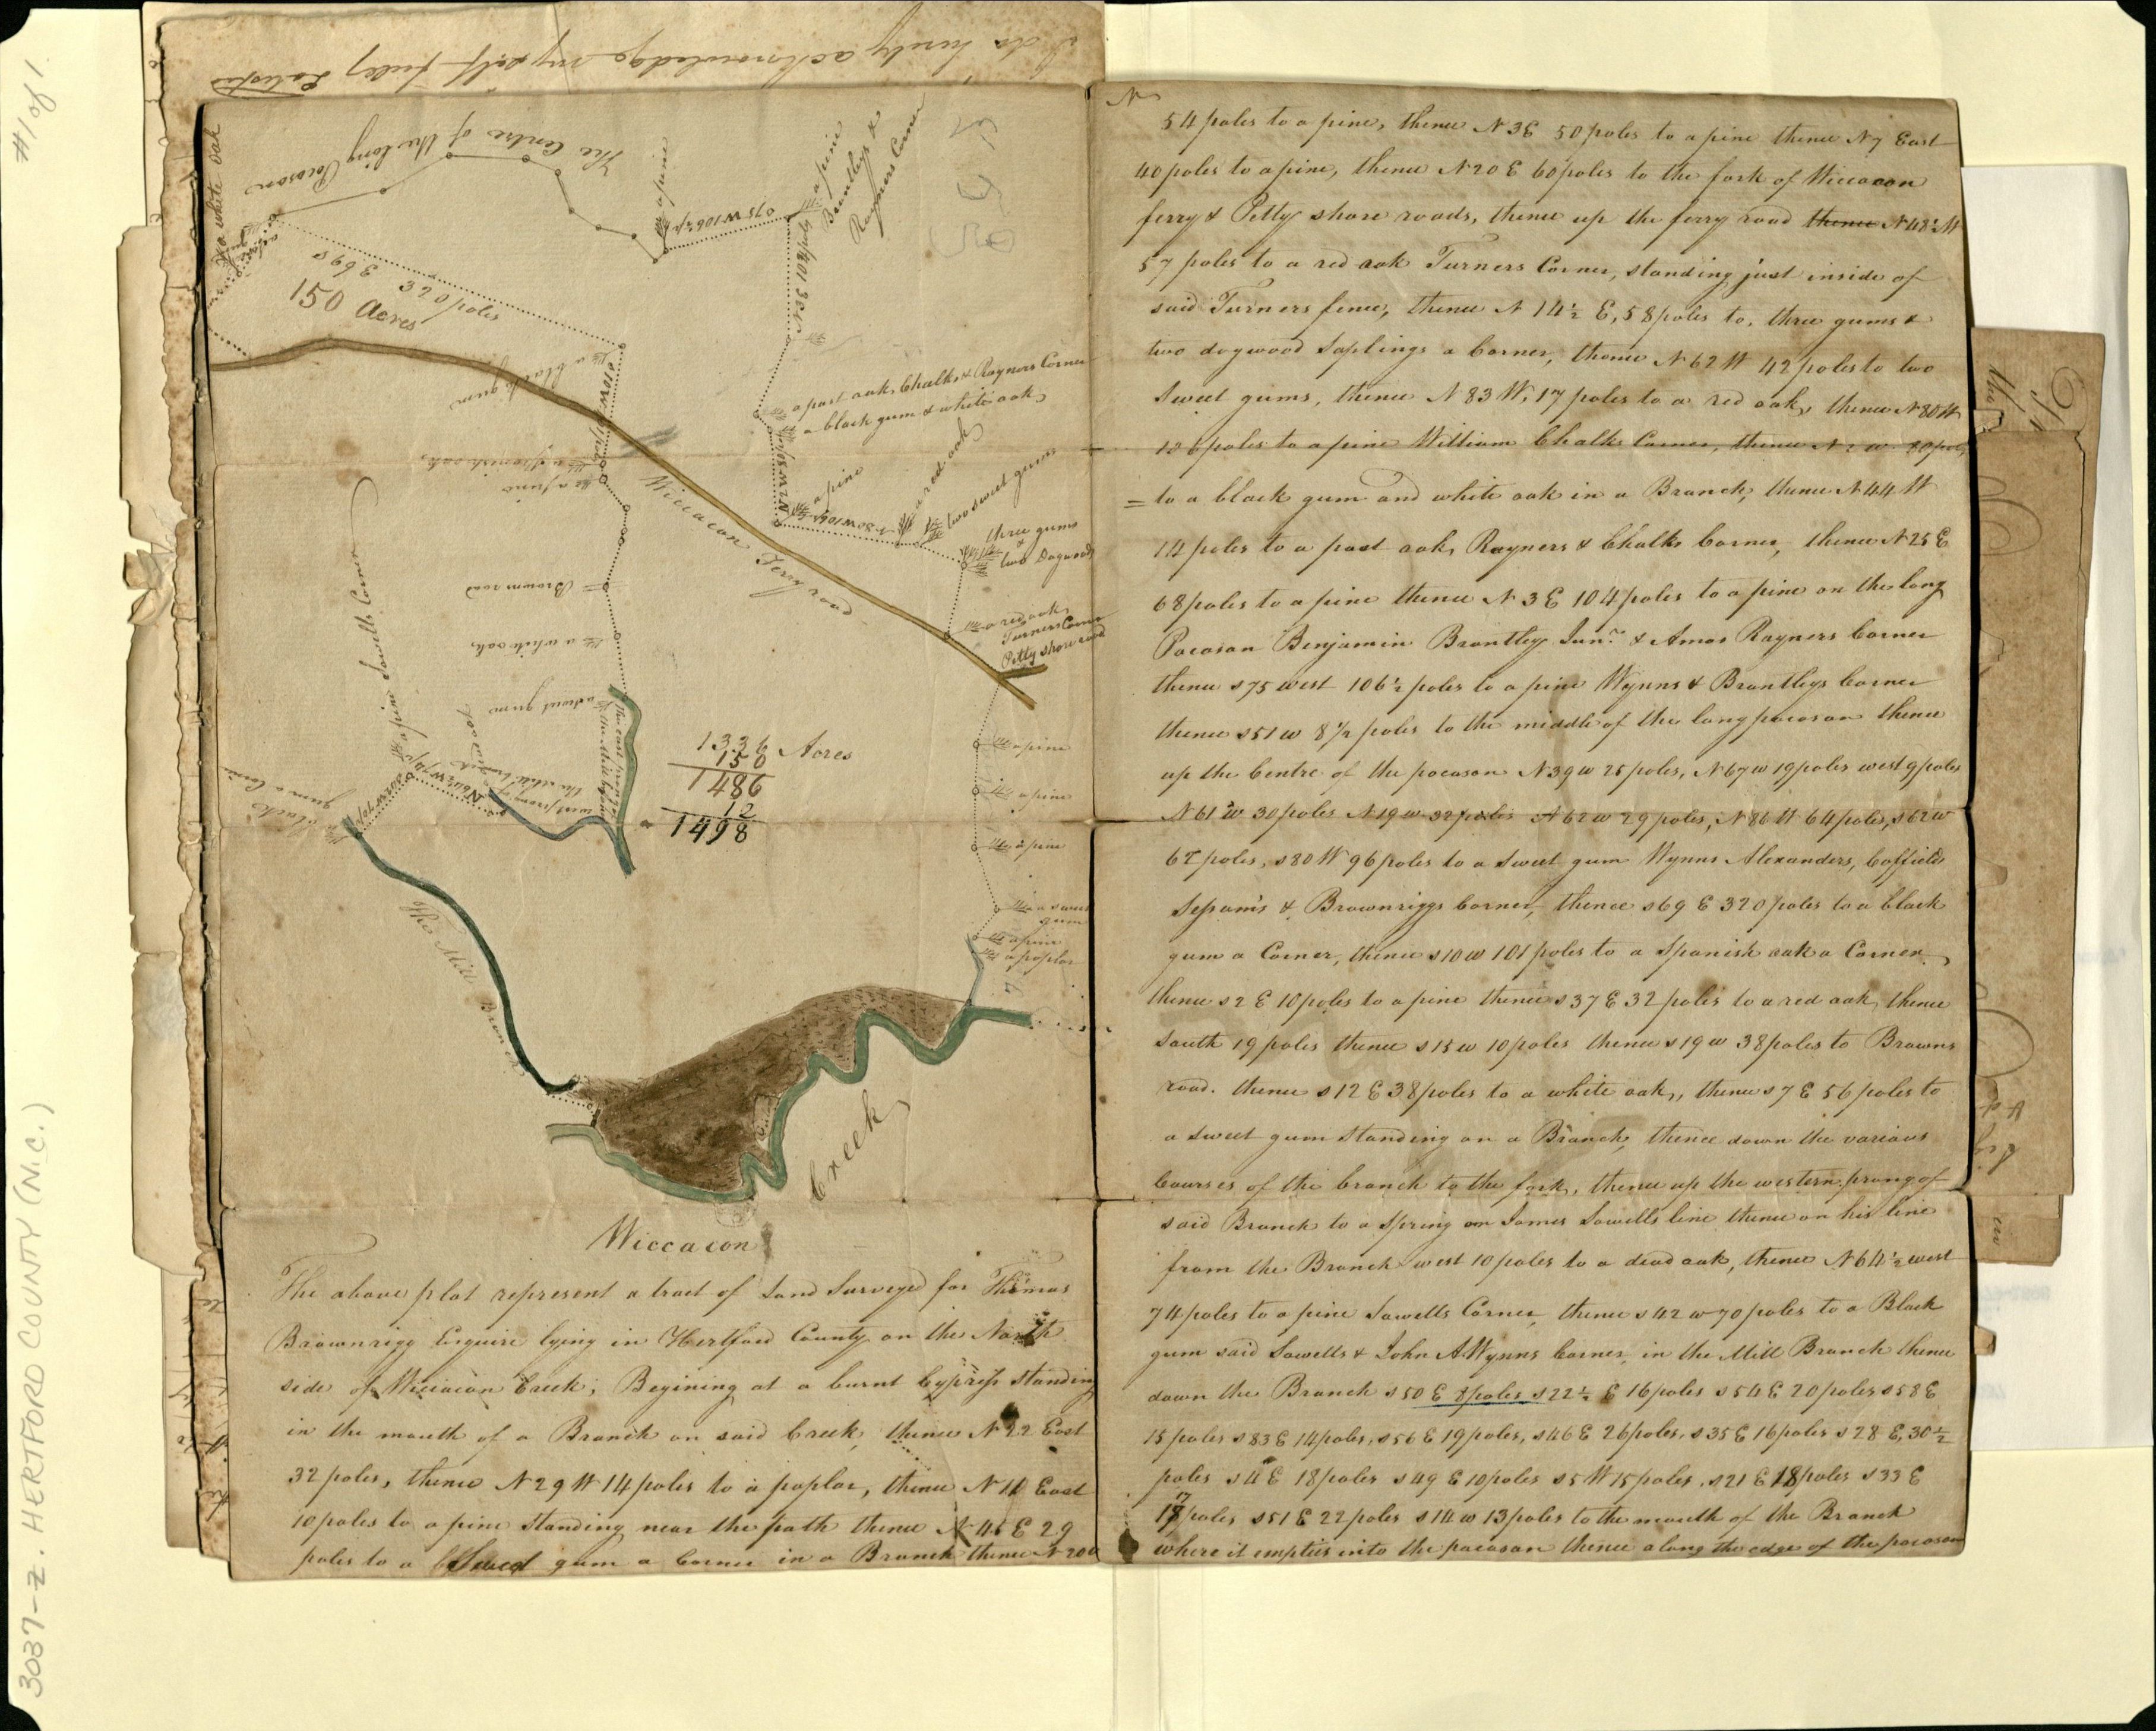 #1 of 1
3087-z. HERTFORD COUNTY (N.C.)
I do hereby acknowledge my self fully
two white oak
The Centre of the long Pocoson
a pine
S75W 106½ p
a pine
Brantleys &
Rayners Corner
N3E 104 poles
S69E
320 poles
150 Acres
a black gum
S10W
a Spanish oak
a pine
a post oak, Chalks & Rayners Corner
a black gum & white oak
N2W 80 poles
a pine
a red oak
two sweet gums
three gums
&
two Dogwoods
a red oak
Turners Corner
Petty shore road
Wiccacon Ferry road
Browns road
a white oak
a sweet gum
a pine Sowells Corner
dead oak
west prong of
the
a black
gum a Corner
1336 Acres
150
1486
12
1498
a pine
a pine
a pine
a sweet
gum
a pine
a poplar
The Mill Branch
Creek
Wiccacon
The above plat represent a tract of Land Surveyd for Thomas
Brownrigg Esquire lying in Hertford County on the North
side of Wiccacon Creek, Begining at a burnt Cypress standing
in the mouth of a Branch on said Creek, thence N 22 East
32 poles, thence N 29 W 14 poles to a poplar, thence N 11 East
10 poles to a pine standing near the path thence N 45 E 29
poles to a Sweet gum a Corner in a Branch thence N 20
54 poles to a pine, thence N 3 E 50 poles to a pine thence N 7 East
40 poles to a pine, thence N 20 E 60 poles to the fork of Wiccacon
ferry & Petty shore roads, thence up the ferry road thence N 48½ W
57 poles to a red oak Turners Corner, standing just inside of
said Turners fence, thence N 14½ E, 58 poles to, three gums &
two dogwood Saplings a Corner, thence N 62 W 42 poles to two
Sweet gums, thence N 83 W, 17 poles to a red oak, thence N 80 W
106 poles to a pine William Chalks Corner, thence N 2 w 80 poles
= to a black gum and white oak in a Branch, thence N 44 W
14 poles to a post oak, Rayners & Chalks Corner, thence N 25 E
68 poles to a pine thence N 3 E 104 poles to a pine on the long
Pocoson Benjamin Brantley Junr. & Amos Rayners Corner
thence S 75 west 106½ poles to a pine Wynns & Brantleys Corner
thence S 51 w 8½ poles to the middle of the long pocoson thence
up the Centre of the pocoson N 39 w 25 poles, N 67 w 19 poles west 9 poles
N 61 w 30 poles N 19 w 32 poles N 62 w 29 poles, N 86 W 64 poles, S 62 w
62 poles, S 80 W 96 poles to a Sweet gum Wynns Alexanders, Coffields
Sessoms & Brownriggs Corner, thence S 69 E 320 poles to a black
gum a Corner, thence S 10 w 101 poles to a Spanish oak a Corner
thence S 2 E 10 poles to a pine thence S 37 E 32 poles to a red oak, thence
South 19 poles thence S 15 w 10 poles thence S 19 w 38 poles to Browns
road. thence S 12 E 38 poles to a white oak, thence S 7 E 56 poles to
a Sweet gum Standing on a Branch, thence down the various
Courses of the branch to the fork, thence up the western prong of
said Branch to a Spring on James Sowells line thence on his line
from the Branch west 10 poles to a dead oak, thence N 64½ west
74 poles to a pine Sowells Corner, thence S 42 w 70 poles to a Black
gum said Sowells & John A Wynns Corner, in the Mill Branch thence
down the Branch S 50 E 8 poles S 22½ E 16 poles S 54 E 20 poles S 58 E
15 poles S 83 E 14 poles, S 56 E 19 poles, S 46 E 26 poles, S 35 E 16 poles S 28 E, 30½
poles S 4 E 18 poles S 49 E 10 poles S 5 W 15 poles, S 21 E 18 poles S 33 E
17 poles S 51 E 22 poles S 14 w 13 poles to the mouth of the Branch
where it empties into the pocoson thence along the edge of the pocoson